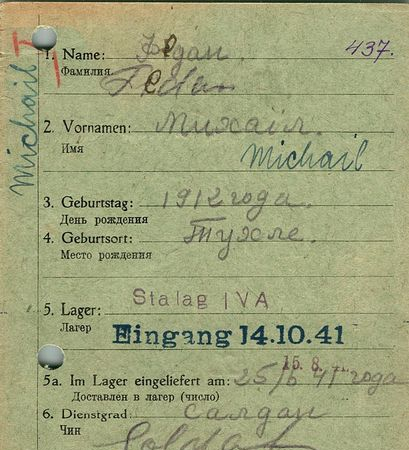 Michail
1. Name: Федан. 437.
Фамилия
Fedan
2. Vornamen: Михаіл.
Имя
Michail
3. Geburtstag: 1912 года.
День рождения
4. Geburtsort: Тухле.
Место рождения
5. Lager: Stalag IVA
Лагер
Eingang 14.10.41
15.8.
5a. Im Lager eingeliefert am: 25/6 41 года
Доставлен в лагер (число)
6. Dienstgrad: салдат
Чин
Soldat